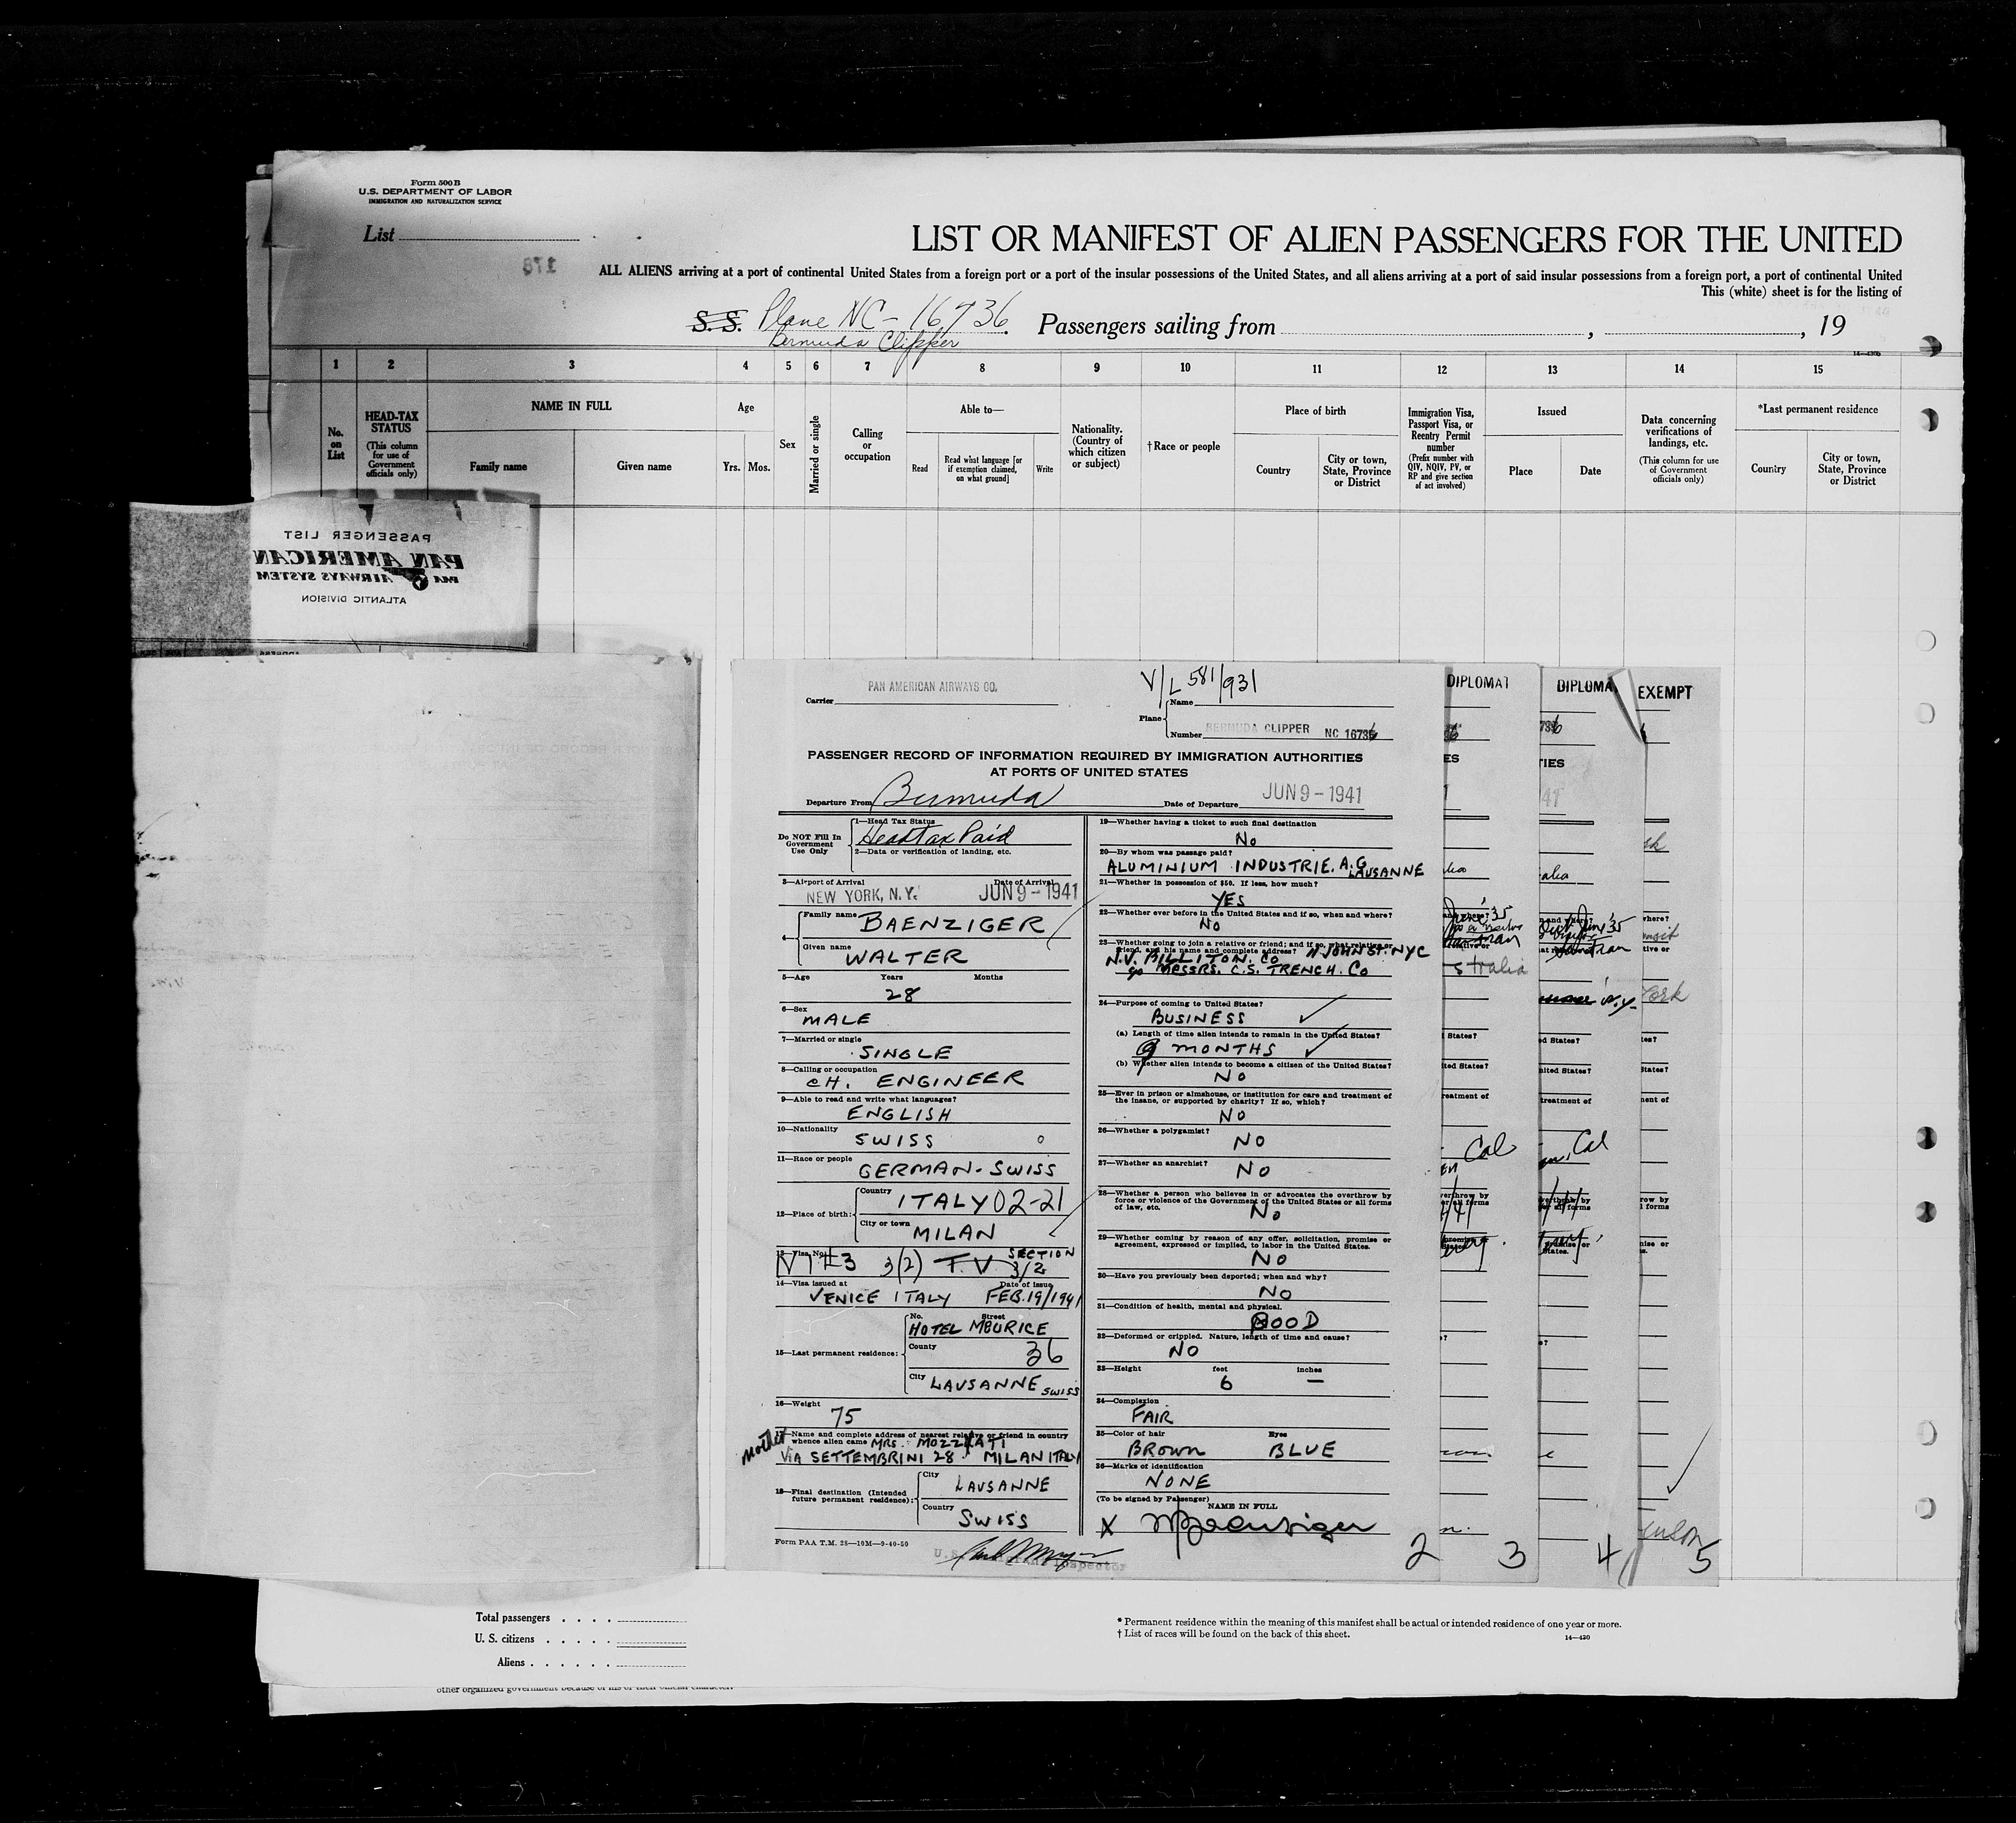 Form 500 B
U.S. DEPARTMENT OF LABOR
IMMIGRATION AND NATURALIZATION SERVICE
List
LIST OR MANIFEST OF ALIEN PASSENGERS FOR THE UNITED
178
ALL ALIENS arriving at a port of continental United States from a foreign port or a port of the insular possessions of the United States, and all aliens arriving at a port of said insular possessions from a foreign port, a port of continental United
This (white) sheet is for the listing of
S. S. Plane NC-16736 Passengers sailing from , , 19
Bermuda Clipper
1 2 3 4 5 6 7 8 9 10 11 12 13 14 15
No. on List
HEAD-TAX STATUS
(This column for use of Government officials only)
NAME IN FULL
Family name
Given name
Age
Yrs. Mos.
Sex
Married or single
Calling or occupation
Able to—
Read
Read what language [or if exemption claimed, on what ground]
Write
Nationality. (Country of which citizen or subject)
†Race or people
Place of birth
Country
City or town, State, Province or District
Immigration Visa, Passport Visa, or Reentry Permit number
(Prefix number with QIV, NQIV, PV, or RP and give section of act involved)
Issued
Place
Date
Data concerning verifications of landings, etc.
(This column for use of Government officials only)
*Last permanent residence
Country
City or town, State, Province or District
PASSENGER LIST
PAN AMERICAN
PAA AIRWAYS SYSTEM
ATLANTIC DIVISION
ADDRESS
V/L 581/931
PAN AMERICAN AIRWAYS CO.
Carrier
Plane
Name
Number BERMUDA CLIPPER NC 16736
PASSENGER RECORD OF INFORMATION REQUIRED BY IMMIGRATION AUTHORITIES
AT PORTS OF UNITED STATES
Departure From Bermuda Date of Departure JUN 9-1941
Do NOT Fill In Government Use Only
1—Head Tax Status
Head Tax Paid
2—Data or verification of landing, etc.
3—Airport of Arrival Date of Arrival
NEW YORK, N.Y. JUN 9-1941
4—
Family name BAENZIGER
Given name
WALTER
5—Age Years Months
28
6—Sex
MALE
7—Married or single
SINGLE
8—Calling or occupation
CH. ENGINEER
9—Able to read and write what languages?
ENGLISH
10—Nationality
SWISS
11—Race or people
GERMAN-SWISS
12—Place of birth:
Country
ITALY 02-21
City or town
MILAN
13—Visa No.
#3 3(2) T.V. SECTION 3/2
14—Visa issued at Date of issue
VENICE ITALY FEB.19/1941
15—Last permanent residence:
No. Street
HOTEL MEURICE
County
36
City LAUSANNE SWISS
16—Weight
75
17—Name and complete address of nearest relative or friend in country
whence alien came MRS. MOZZATI
mother
VIA SETTEMBRINI 28 MILAN ITALY
18—Final destination (Intended future permanent residence):
City
LAUSANNE
Country
SWISS
Form PAA T.M. 28—10M—9-40-50
19—Whether having a ticket to such final destination
No
20—By whom was passage paid?
ALUMINIUM INDUSTRIE. A.G. LAUSANNE
21—Whether in possession of $50. If less, how much?
YES
22—Whether ever before in the United States and if so, when and where?
No
23—Whether going to join a relative or friend; and if so, what relative or
friend, and his name and complete address? 11 JOHN ST. NYC
N.V. BILLITON. CO
c/o MESSRS. C.S. TRENCH. CO
24—Purpose of coming to United States?
BUSINESS
(a) Length of time alien intends to remain in the United States?
9 MONTHS
(b) Whether alien intends to become a citizen of the United States?
No
25—Ever in prison or almshouse, or institution for care and treatment of
the insane, or supported by charity? If so, which?
No
26—Whether a polygamist?
No
27—Whether an anarchist?
No
28—Whether a person who believes in or advocates the overthrow by
force or violence of the Government of the United States or all forms
of law, etc.
No
29—Whether coming by reason of any offer, solicitation, promise or
agreement, expressed or implied, to labor in the United States.
No
30—Have you previously been deported; when and why?
NO
31—Condition of health, mental and physical.
GOOD
32—Deformed or crippled. Nature, length of time and cause?
NO
33—Height feet inches
6 —
34—Complexion
FAIR
35—Color of hair Eyes
BROWN BLUE
36—Marks of identification
NONE
(To be signed by Passenger)
NAME IN FULL
X WBaenziger
2 3 4 5
DIPLOMAT
DIPLOMA
EXEMPT
Cal
Cal
Total passengers
U. S. citizens
Aliens
* Permanent residence within the meaning of this manifest shall be actual or intended residence of one year or more.
† List of races will be found on the back of this sheet.
14—430
other organized government because of his or their official character.